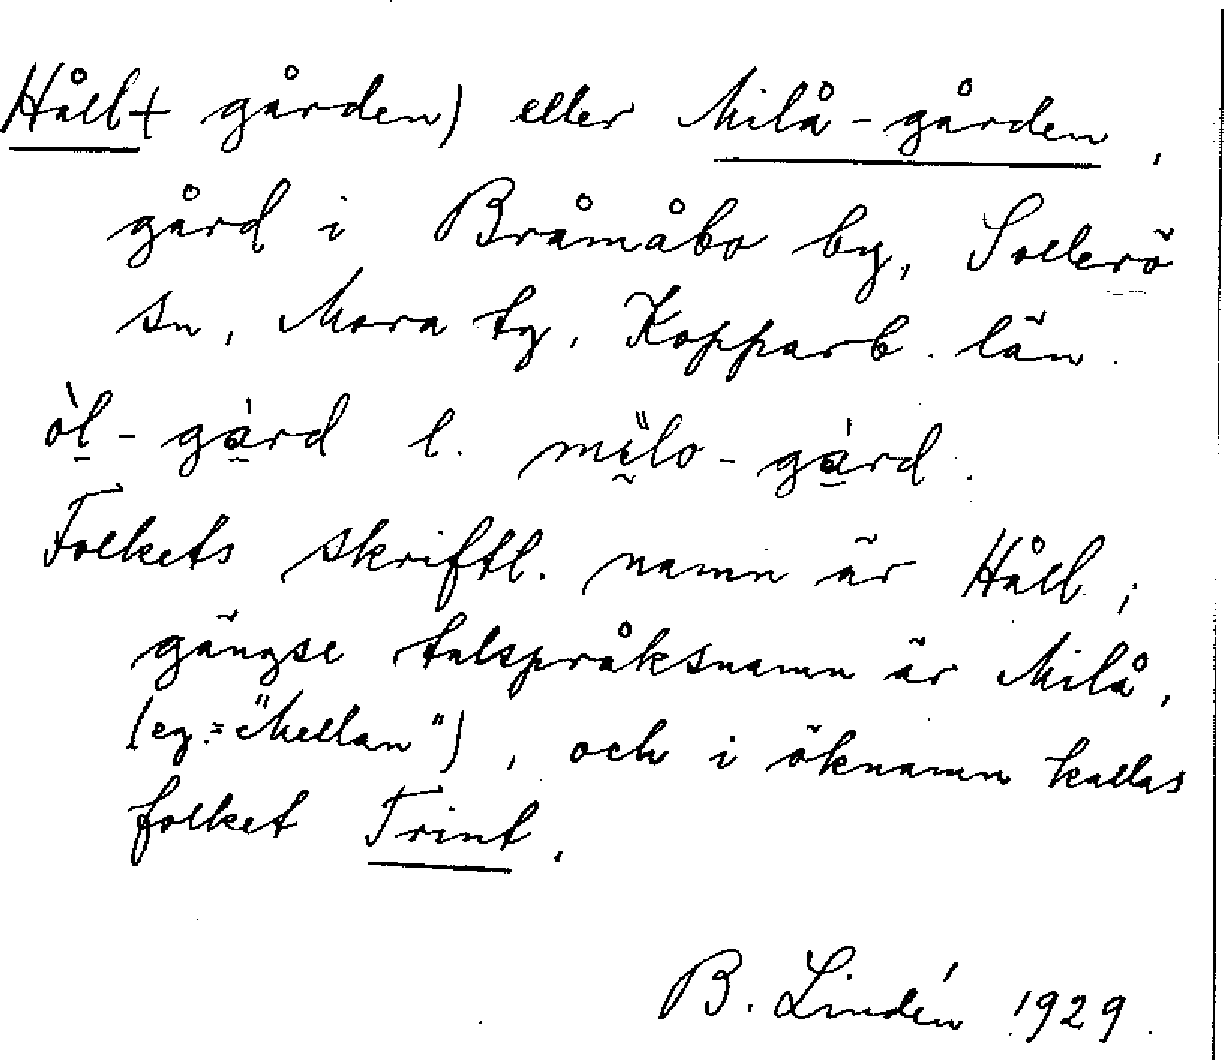 Håll(-gården) eller Milå-gården,
gård i Bråmåbo by, Sollerö
sn, Mora tg, Kopparb. län.
òl-gárd l. mìlo-gárd.
Folkets skriftl. namn är Håll;
gängse talspråksnamn är Milå,
(eg. = "Mellan"), och i öknamn kallas
folket Trint.
B. Lindén 1929.